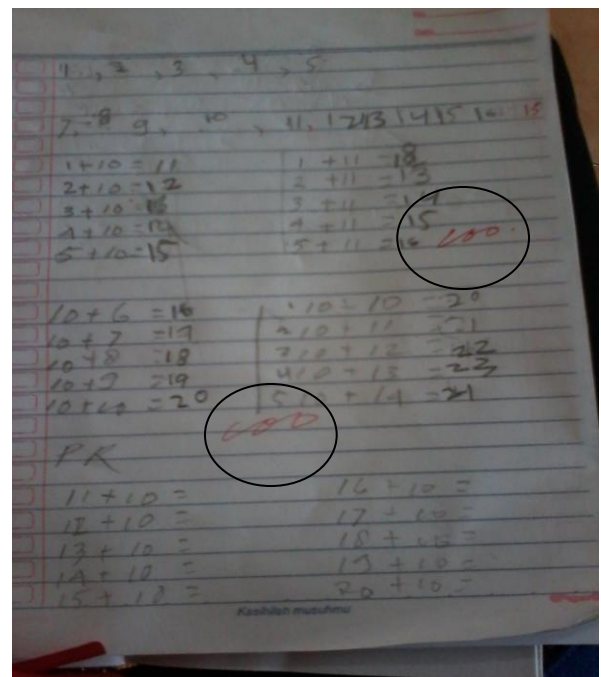 1, 2, 3, 4, 5
7, 8 9, 10, 11, 12 13 14 15 16 15
1 + 10 = 11
2 + 10 = 12
3 + 10 = 13
4 + 10 = 14
5 + 10 = 15
1 + 11 =
2 + 11 = 13
3 + 11 = 14
4 + 11 = 15
5 + 11 = 16 100.
10 + 6 = 16
10 + 7 = 17
10 + 8 = 18
10 + 9 = 19
10 + 10 = 20
1 10 + 10 = 20
2 10 + 11 = 21
3 10 + 12 = 22
4 10 + 13 = 23
5 10 + 14 = 21
100
PR
11 + 10 =
12 + 10 =
13 + 10 =
14 + 10 =
15 + 10 =
16 + 10 =
17 + 10 =
18 + 10 =
19 + 10 =
20 + 10 =
Kasihilah musuhmu